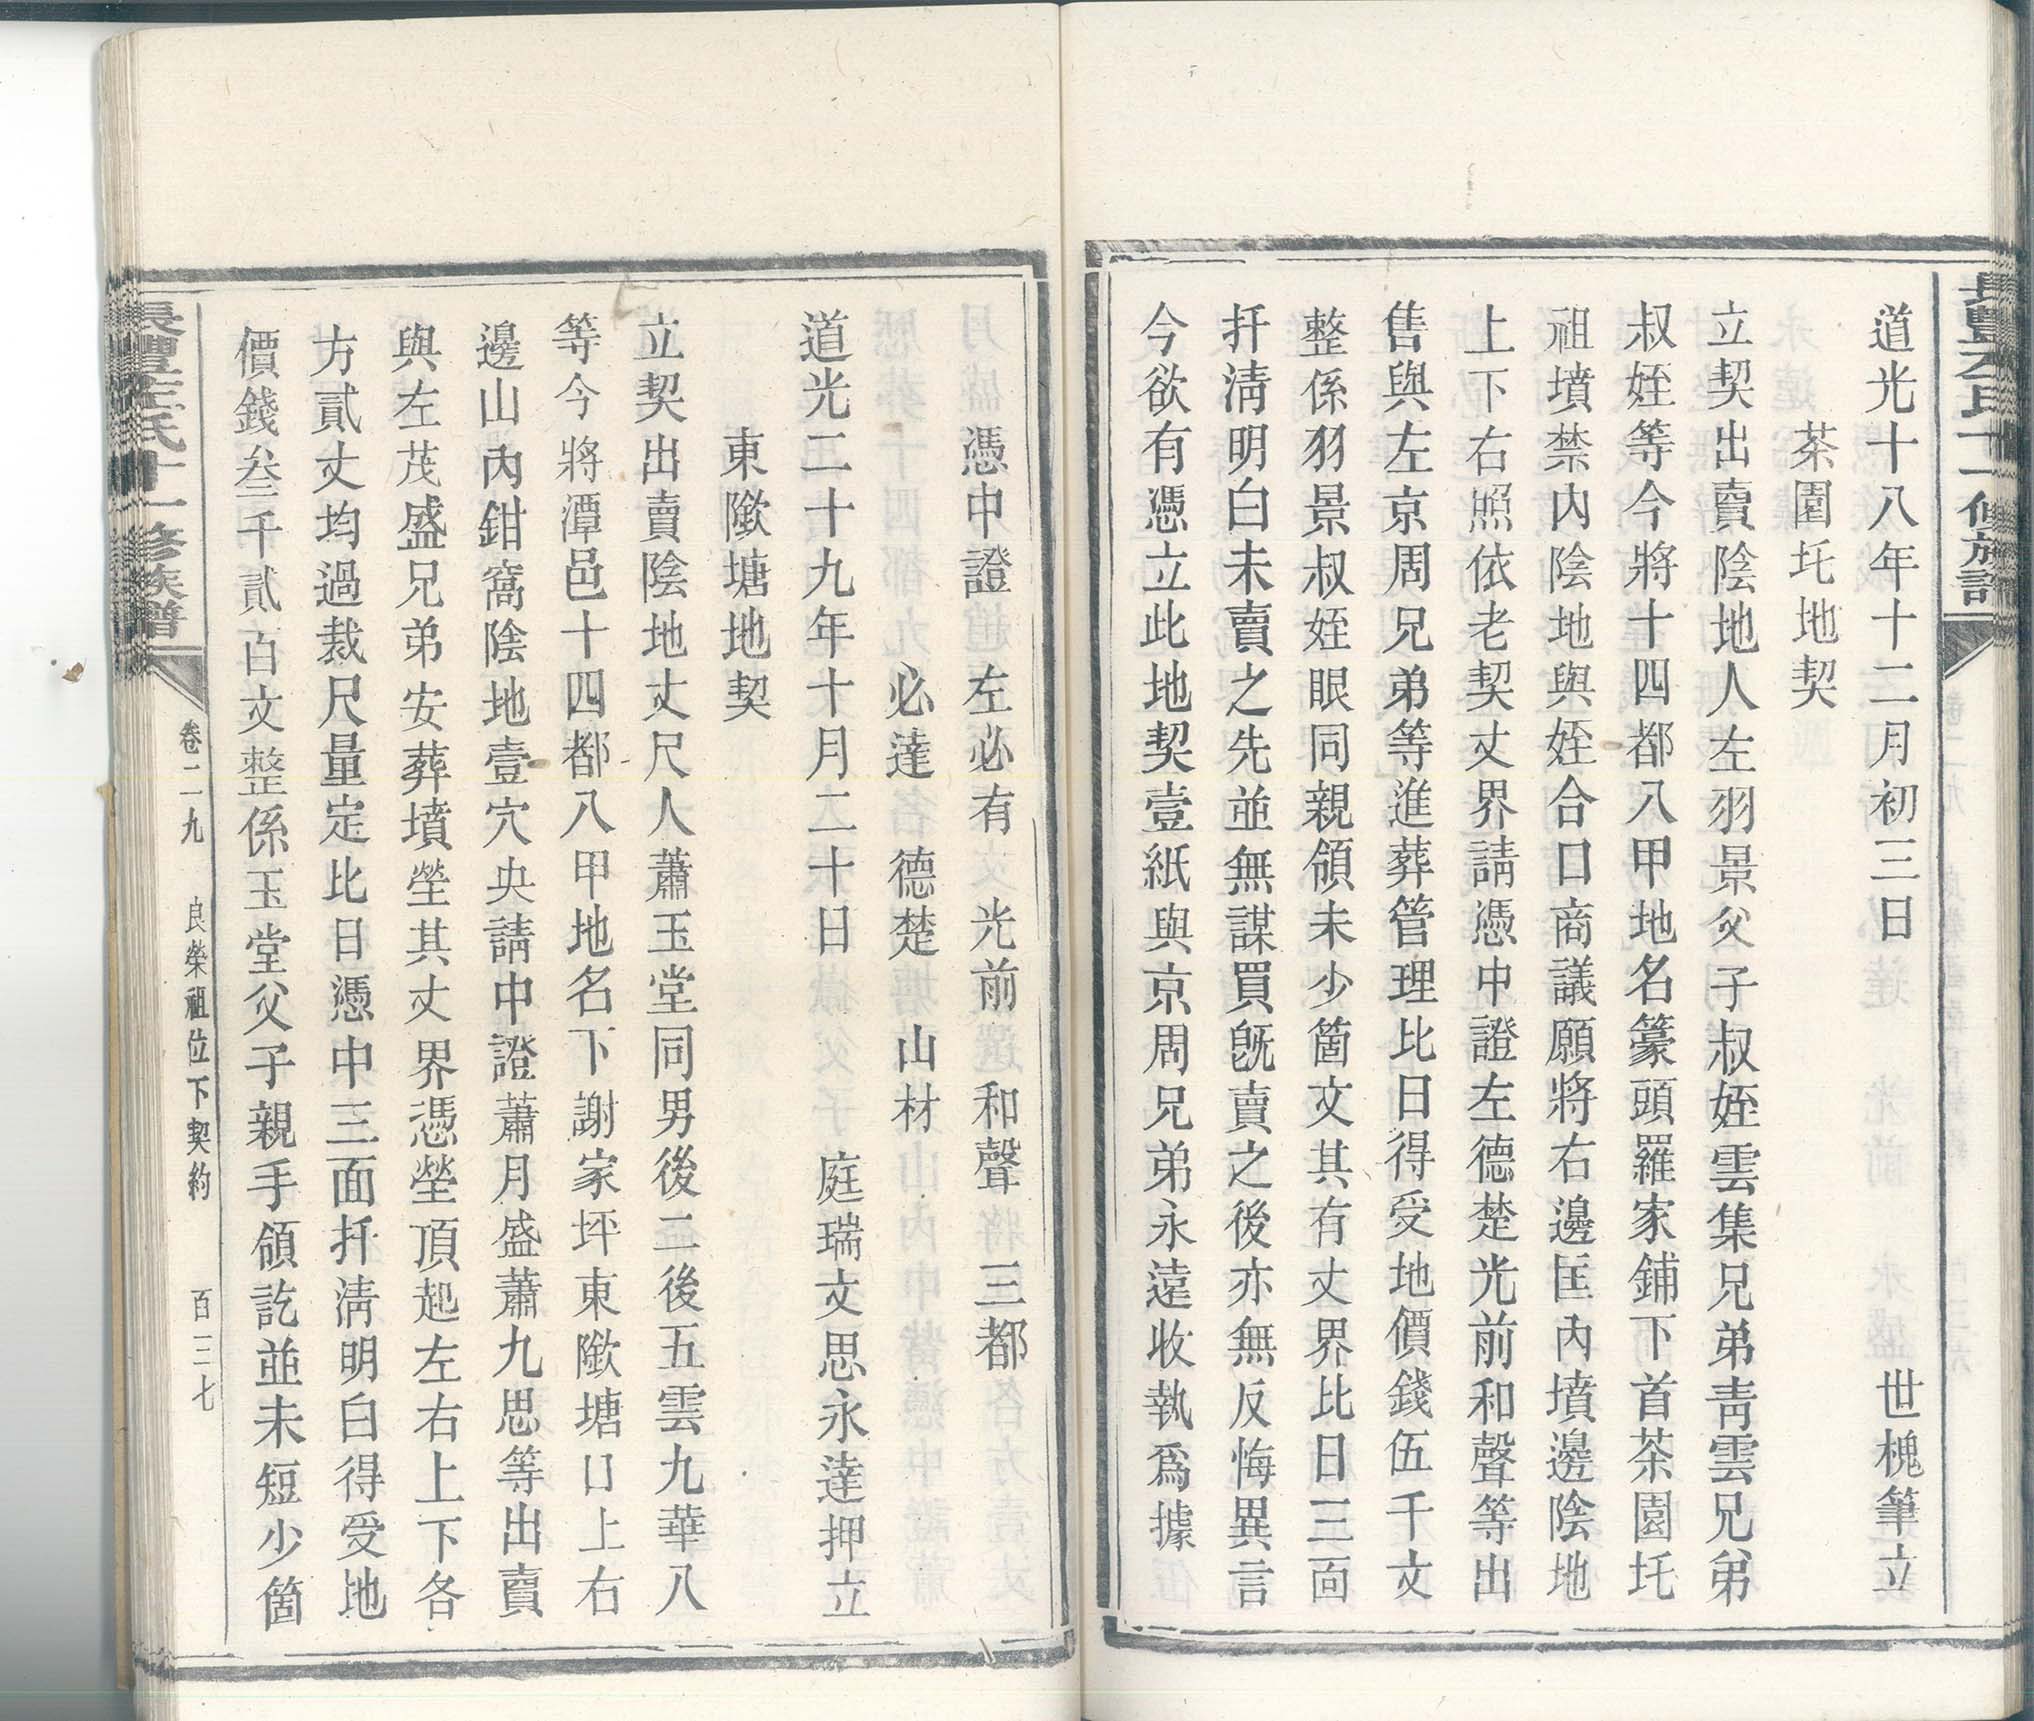 長豐左氏十一修族譜
道光十八年十二月初三日 世槐筆立
茶園圫地契
立契出賣陰地人左羽景父子叔姪雲集兄弟靑雲兄弟
叔姪等今將十四都八甲地名籇頭羅家鋪下首茶園圫
祖墳禁內陰地與姪合口商議願將右邊匡內墳邊陰地
上下右照依老契丈界請憑中證左德楚光前和聲等出
售與左京周兄弟等進葬管理比日得受地價錢伍千文
整係羽景叔姪眼同親領未少箇文其有丈界比日三面
扦淸明白未賣之先並無謀買旣賣之後亦無反悔異言
今欲有憑立此地契壹紙與京周兄弟永遠收執爲據
憑中證 左必有 光前 和聲 三都
必達 德楚 山材
道光二十九年十月二十日 庭瑞文思永達押立
東隞塘地契
立契出賣陰地丈尺人蕭玉堂同男後二後五雲九華八
等今將潭邑十四都八甲地名下謝家坪東隞塘口上右
邊山內鉗窩陰地壹穴央請中證蕭月盛蕭九思等出賣
與左茂盛兄弟安葬墳塋其丈界憑塋頂起左右上下各
方貳丈均過裁尺量定比日憑中三面扦淸明白得受地
價錢叁千貳百文整係玉堂父子親手領訖並未短少箇
長豐左氏十一修族譜
卷二九 良榮祖位下契約 百三七